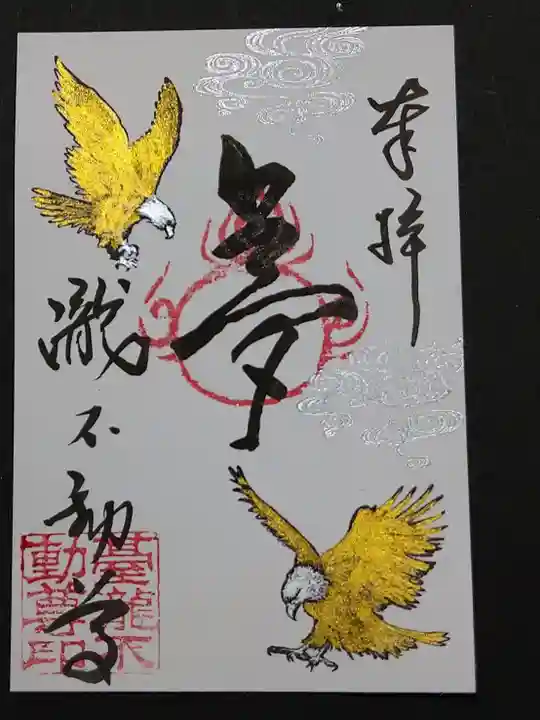 奉拝
夢
瀧不動尊
臺龍不
動尊印